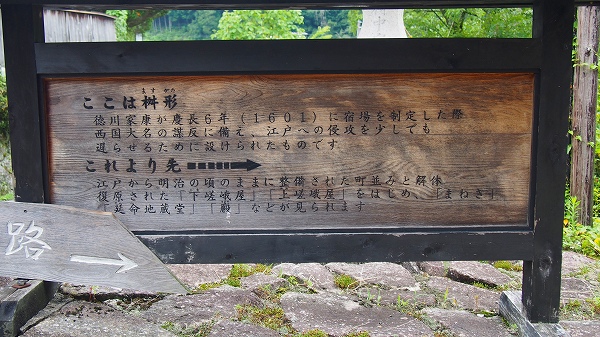 ますがた
ここは桝形
徳川家康が慶長6年(1601)に宿場を制定した際
西国大名の謀反に備え、江戸への侵攻を少しでも
遅らせるために設けられたものです
これより先
江戸から明治の頃のままに整備された町並みと解体
復原された「下嵯峨屋」「上嵯峨屋」をはじめ、「まねき」
「延命地蔵堂」「廟」などが見られます
路
中